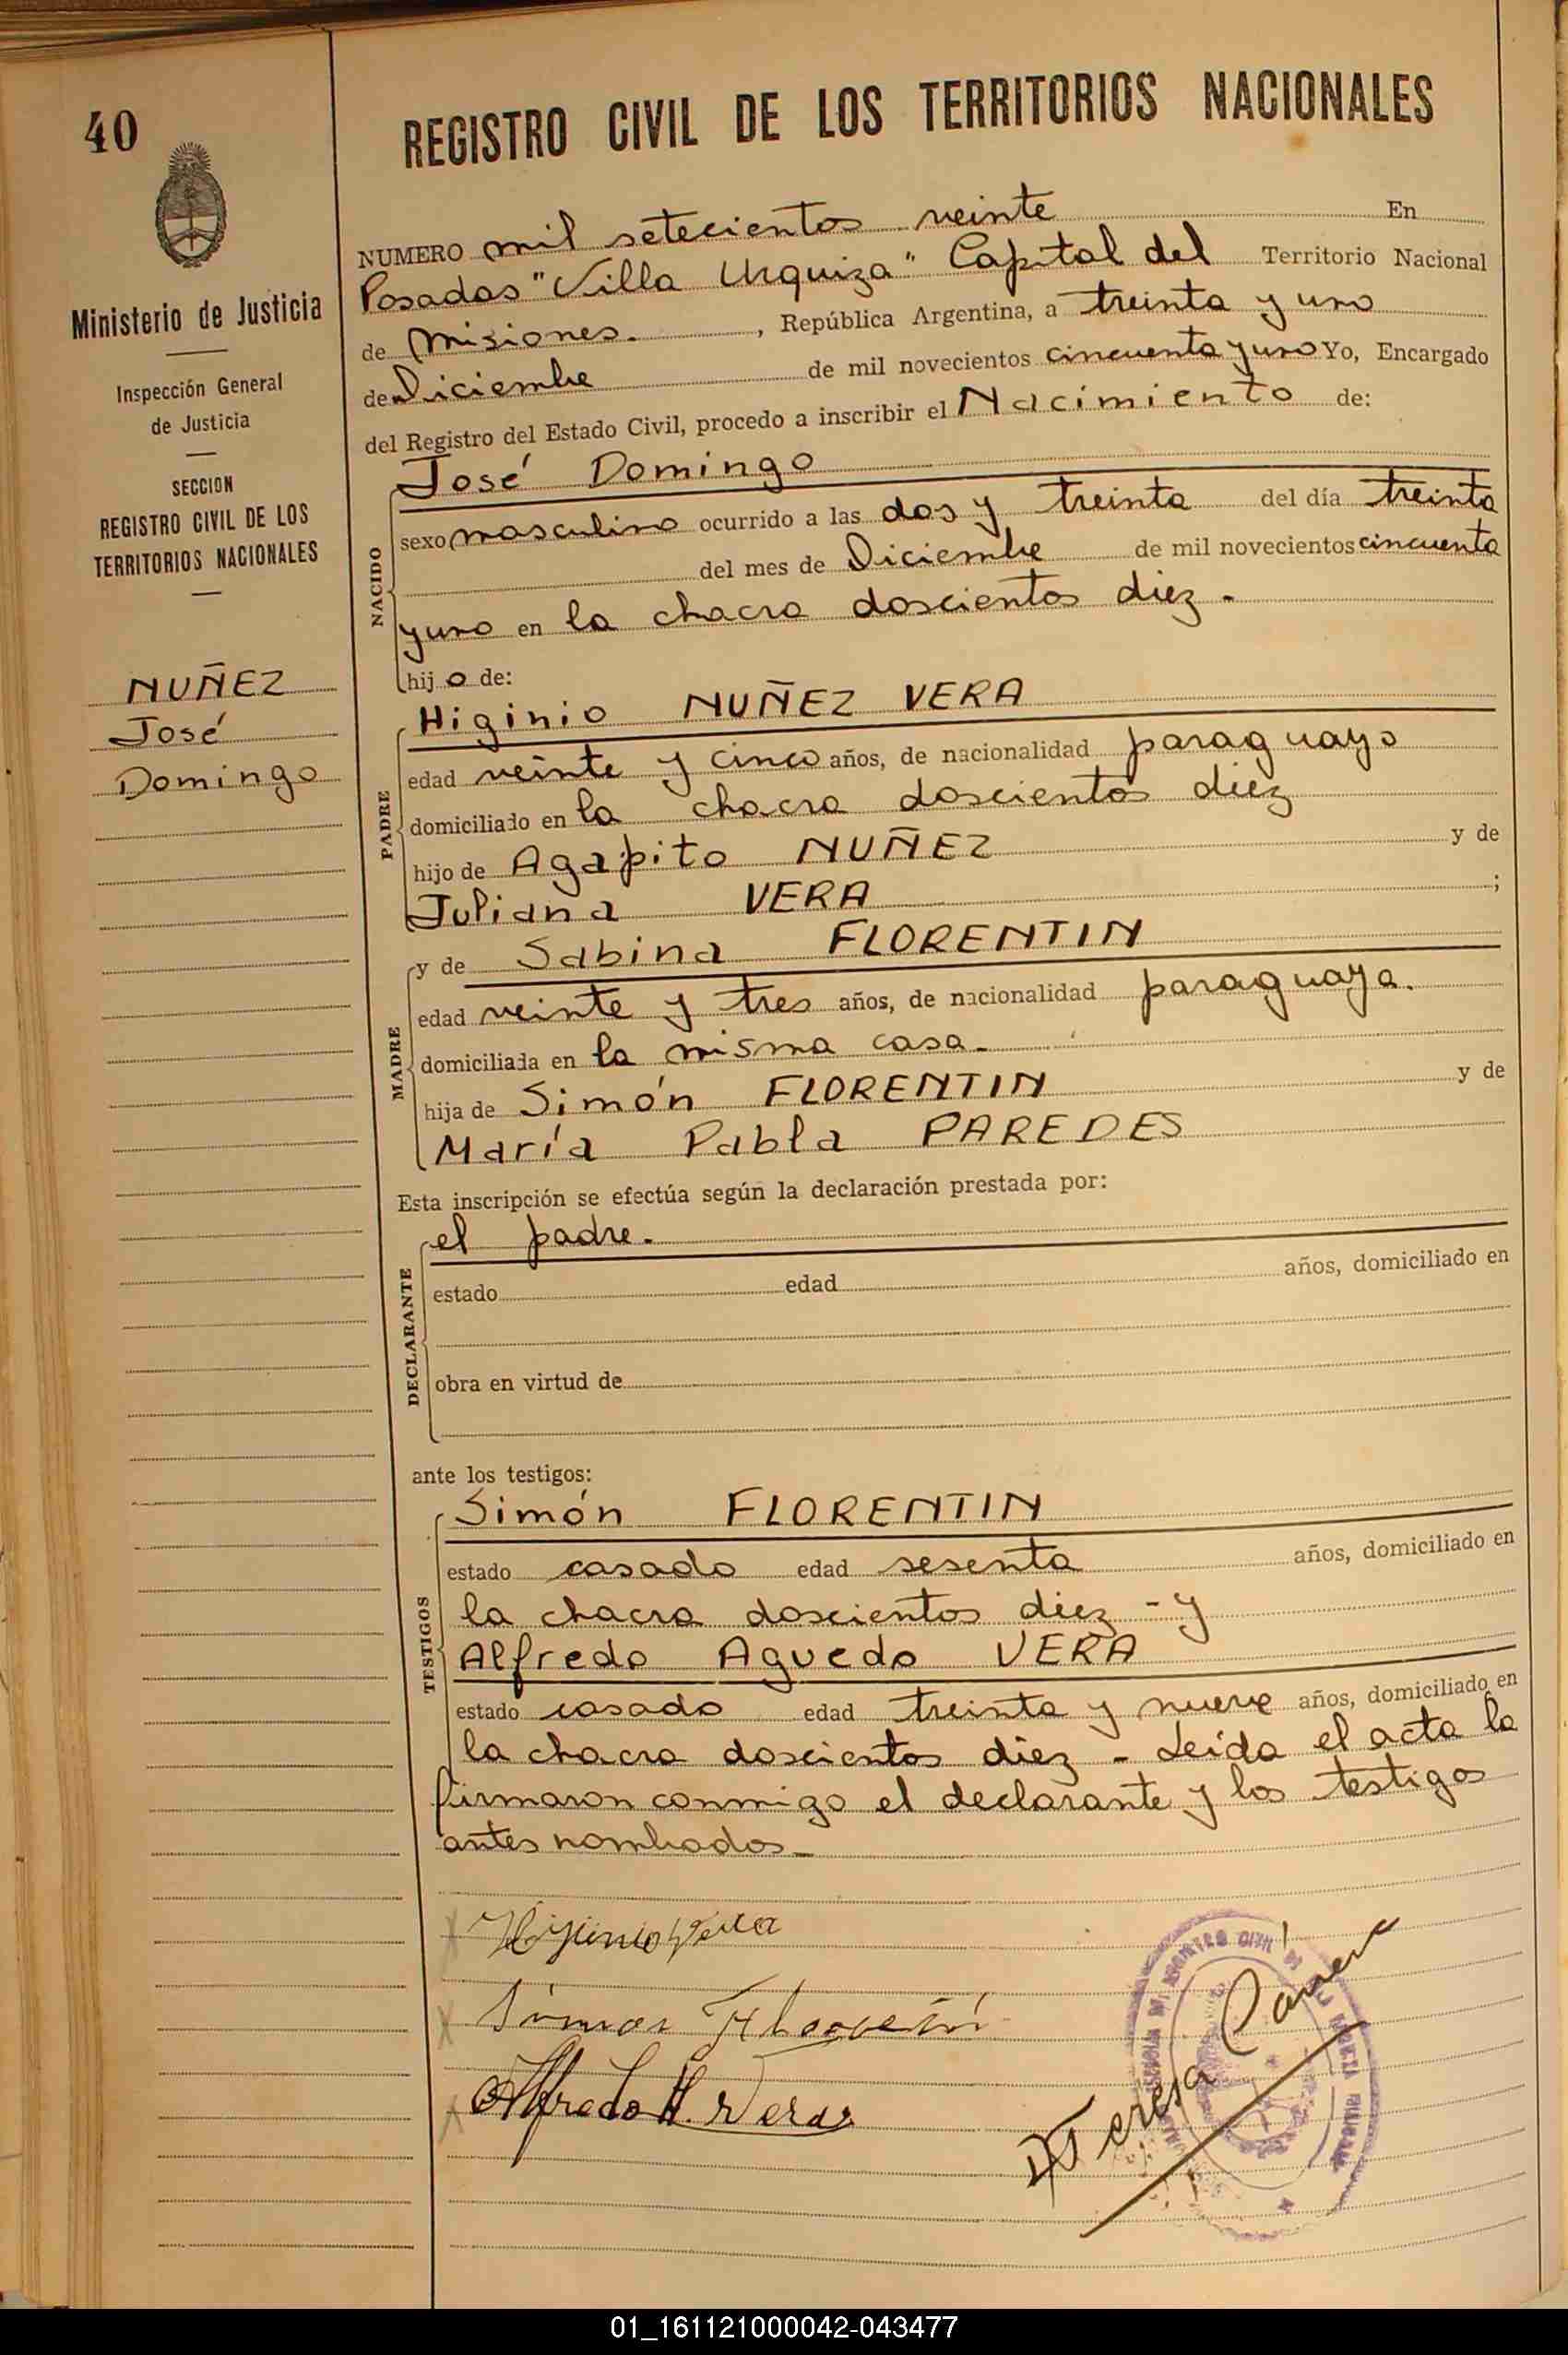 40
REGISTRO CIVIL DE LOS TERRITORIOS NACIONALES
Ministerio de Justicia
Inspección General
de Justicia
SECCION
REGISTRO CIVIL DE LOS
TERRITORIOS NACIONALES
NUÑEZ
José
Domingo
NUMERO mil setecientos veinte En
Posadas "Villa Urquiza" Capital del Territorio Nacional
de Misiones. , República Argentina, a treinta y uno
de Diciembre de mil novecientos cincuenta y uno Yo, Encargado
del Registro del Estado Civil, procedo a inscribir el Nacimiento de:
NACIDO
José Domingo
sexo masculino ocurrido a las dos y treinta del día treinta
del mes de Diciembre de mil novecientos cincuenta
y uno en la chacra doscientos diez.
hijo de:
PADRE
Higinio NUÑEZ VERA
edad veinte y cinco años, de nacionalidad paraguayo
domiciliado en la chacra doscientos diez
hijo de Agapito NUÑEZ y de
Juliana VERA ;
MADRE
y de Sabina FLORENTIN
edad veinte y tres años, de nacionalidad paraguaya.
domiciliada en la misma casa.
hija de Simón FLORENTIN y de
María Pabla PAREDES
Esta inscripción se efectúa según la declaración prestada por:
DECLARANTE
el padre.
estado edad años, domiciliado en
obra en virtud de
ante los testigos:
TESTIGOS
Simón FLORENTIN
estado casado edad sesenta años, domiciliado en
la chacra doscientos diez - y
Alfredo Aguedo VERA
estado casado edad treinta y nueve años, domiciliado en
la chacra doscientos diez - Leída el acta la
firmaron conmigo el declarante y los testigos
antes nombrados
Higinio Vera
Simon Florentin
Alfredo A. Vera
Teresa
REGISTRO CIVIL
01_161121000042-043477